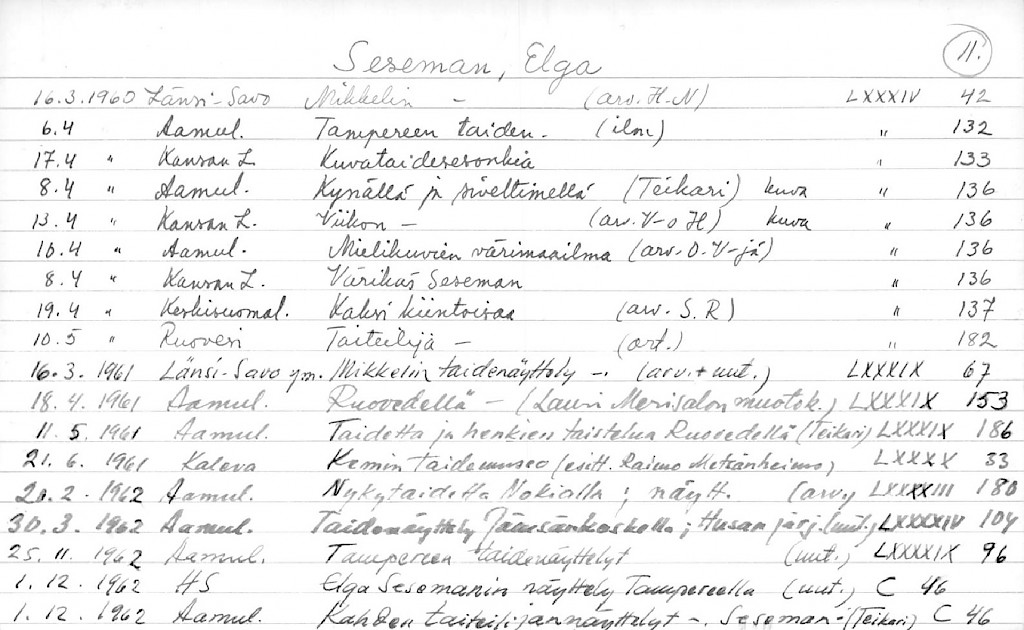 Seseman, Elga 11.
16.3.1960 Länsi-Savo Mikkelin - (arv. H-N) LXXXIV 42
6.4 Aamul. Tampereen taiden. (ilm) " 132
17.4 " Kansan L. Kuvataidesesonkia " 133
8.4 " Aamul. Kynällä ja siveltimellä (Teikari) kuva " 136
13.4 " Kansan L. Viikon - (arv. V-o H) kuva " 136
10.4 " Aamul. Mielikuvien värimaailma (arv. O.V-jä) " 136
8.4 " Kansan L. Värikäs Seseman " 136
19.4 " Keskisuomal. Kaksi kiintoisaa (arv. S.R) " 137
10.5 " Ruovesi Taiteilija - (art.) " 182
16.3.1961 Länsi-Savo ym. Mikkelin taidenäyttely -. (arv. + uut.) LXXXIX 67
18.4.1961 Aamul. Ruovedellä - (Lauri Merisalon muotok.) LXXXIX 153
11.5.1961 Aamul. Taidetta ja henkien taistelua Ruovedellä (Teikari) LXXXIX 186
21.6.1961 Kaleva Kemin taidemuseo (esitt. Raimo Metsänheimo) LXXXX 33
20.2.1962 Aamul. Nykytaidetta Nokialla; näytt. (arv) LXXXXIII 180
30.3.1962 Aamul. Taidenäyttely Jämsänkoskella; Husan järj. (uut.) LXXXXIV 104
25.11.1962 Aamul. Tampereen taidenäyttelyt (uut.) LXXXXIX 96
1.12.1962 HS Elga Sesemanin näyttely Tampereella (uut.) C 46
1.12.1962 Aamul. Kahden taiteilijan näyttelyt -. Seseman - (Teikari) C 46